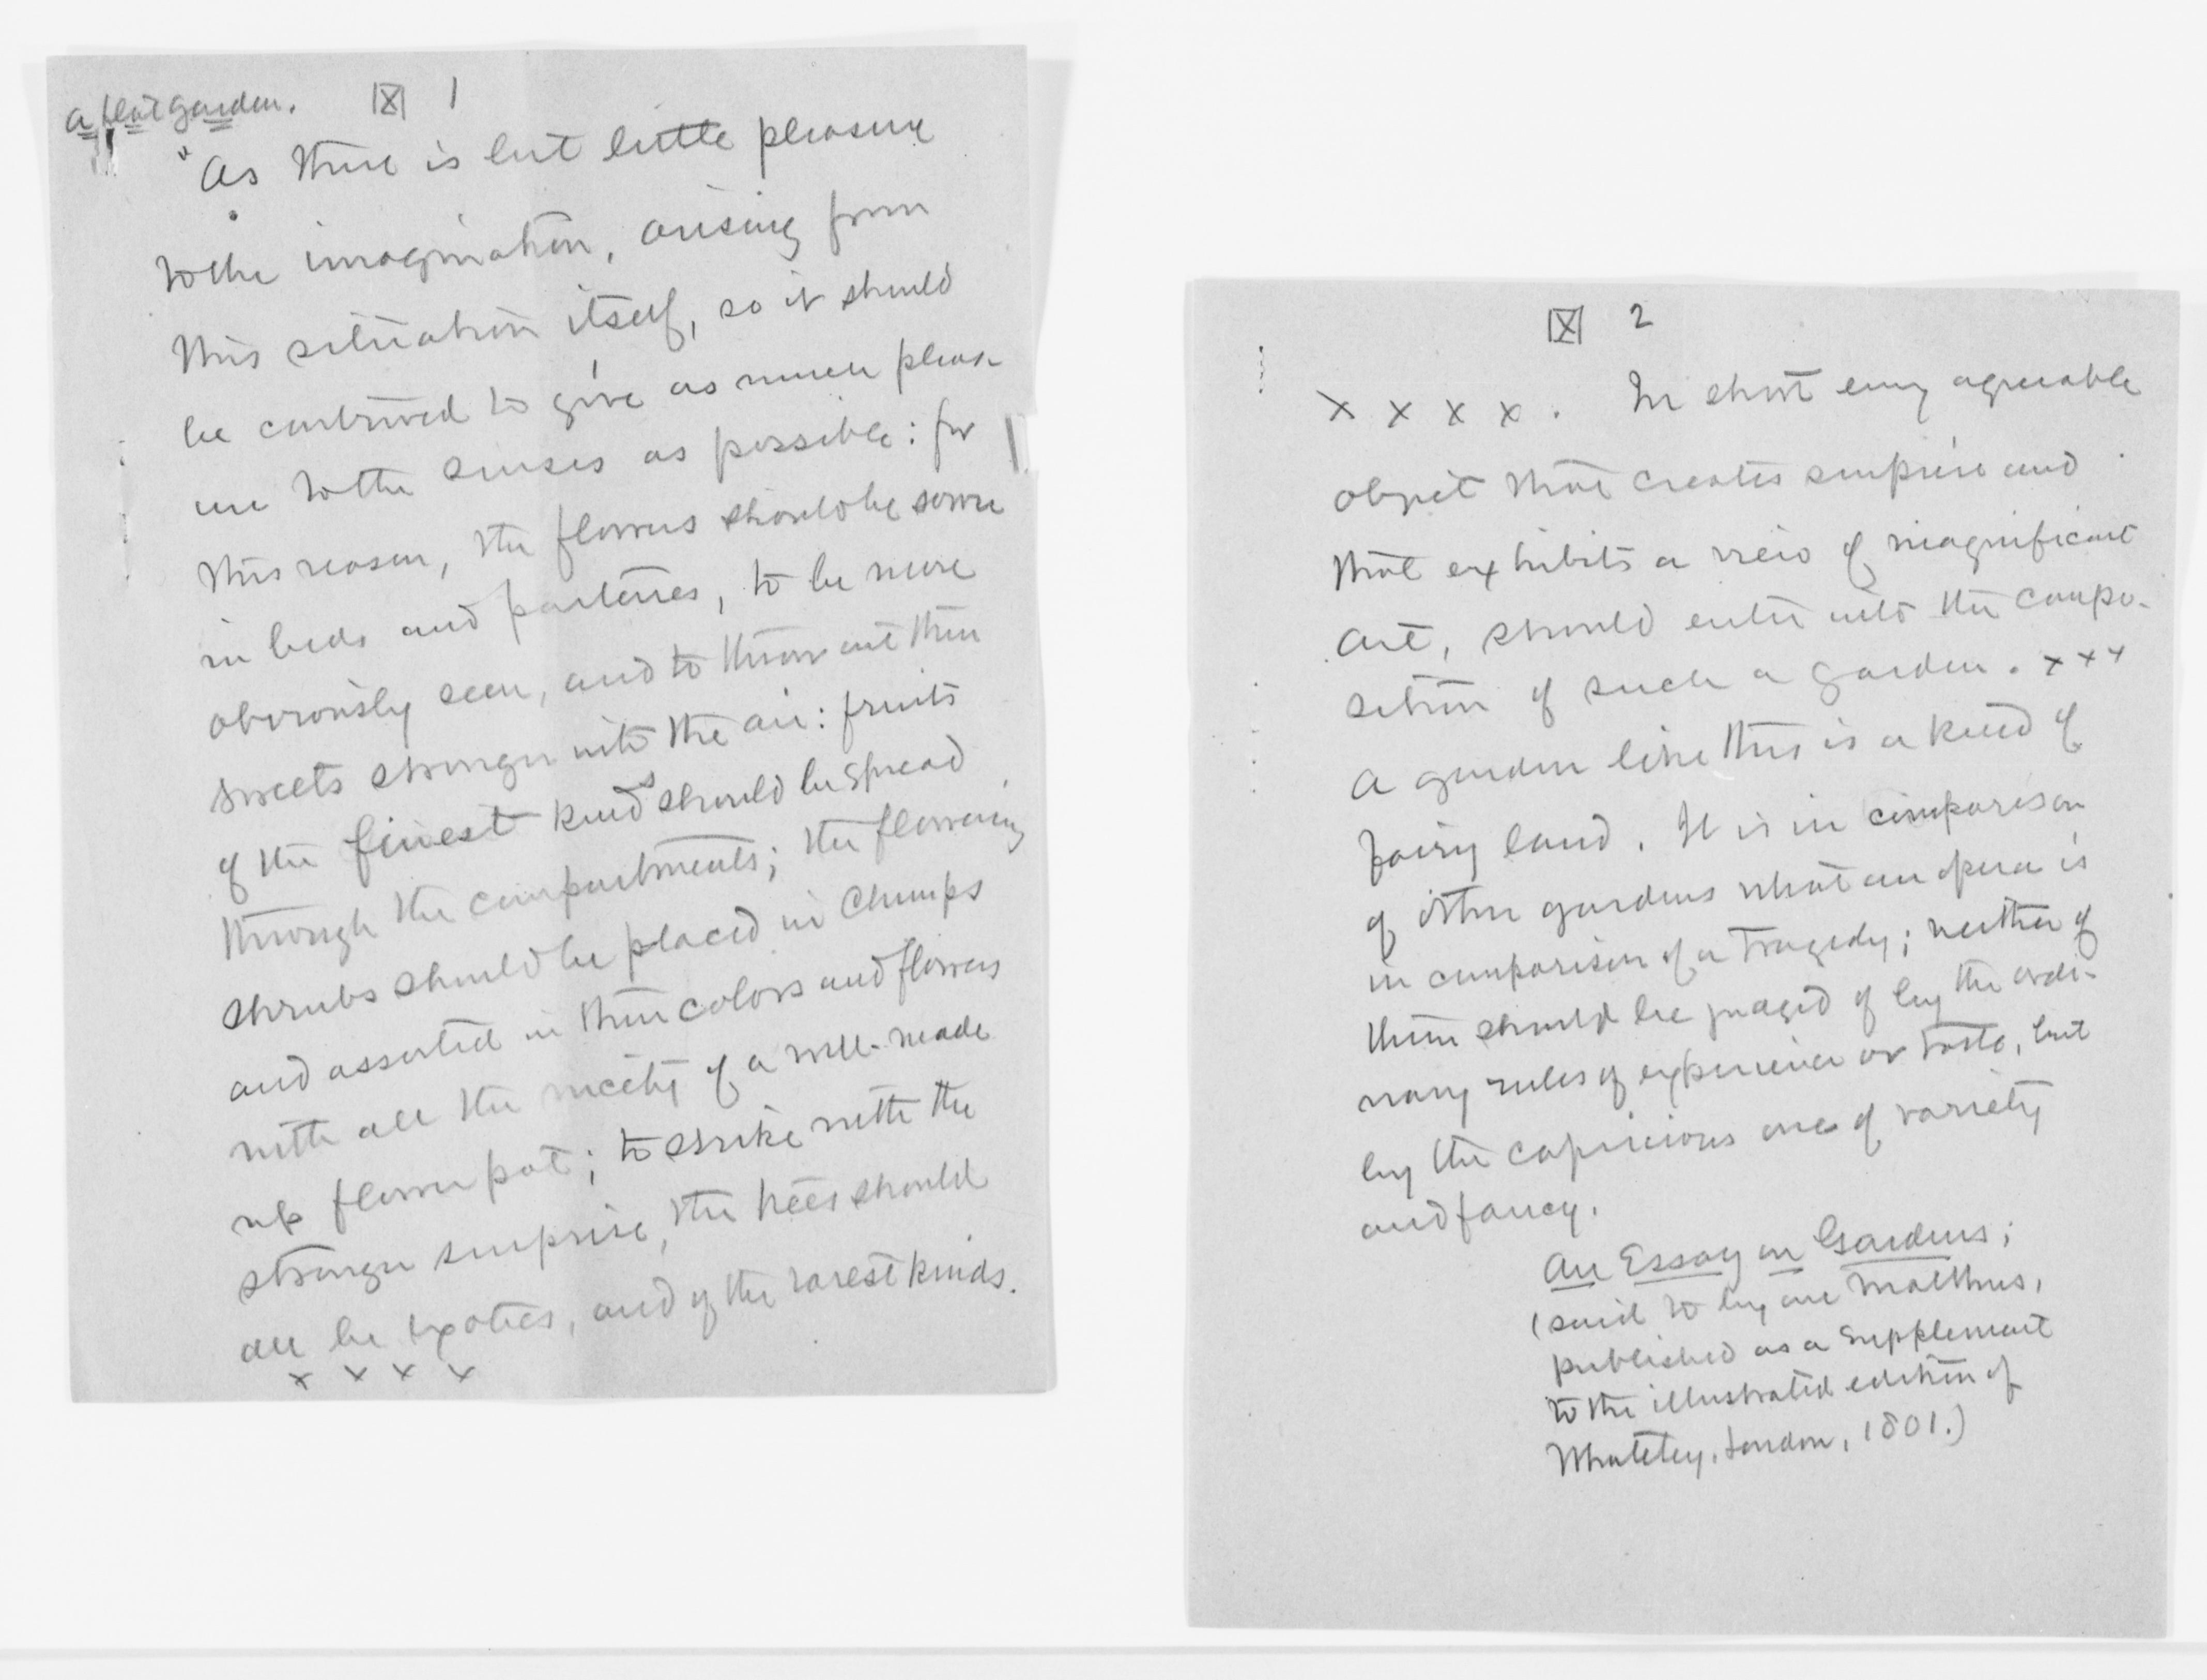 a flat garden. |X| 1
"As there is but little pleasure
to the imagination, arising from
this situation itself, so it should
be contrived to give as much pleas-
ure to the senses as possible: for
this reason, the flowers should be sown
in beds and parterres, to be more
obviously seen, and to throw out their
sweets stronger into the air: fruits
of the finest kinds should be spread
through the compartments; the flowering
shrubs should be placed in clumps
and assorted in their colors and flowers
with all the nicety of a well-made
up flower pot; to strike with the
stronger surprise, the trees should
all be exotics, and of the rarest kinds.
x x x x
|X| 2
x x x x . In short every agreeable
object that creates surprise and
that exhibits a view of magnificent
art, should enter into the compo-
sition of such a garden. x x x
A garden like this is a kind of
fairy land. It is in comparison
of other gardens what an opera is
in comparison of a tragedy; neither of
them should be judged of by the ordi-
nary rules of experience or taste, but
by the capricious ones of variety
and fancy.
An Essay on Gardens;
(said to by one Malthus,
published as a supplement
to the illustrated edition of
Whateley, London, 1801.)